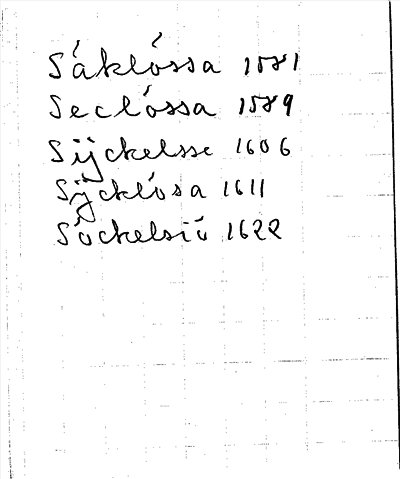 Sáklóssa 1581
Seclóssa 1589
Sijckelsse 1606
Sijcklósa 1611
Sóckelsió 1622